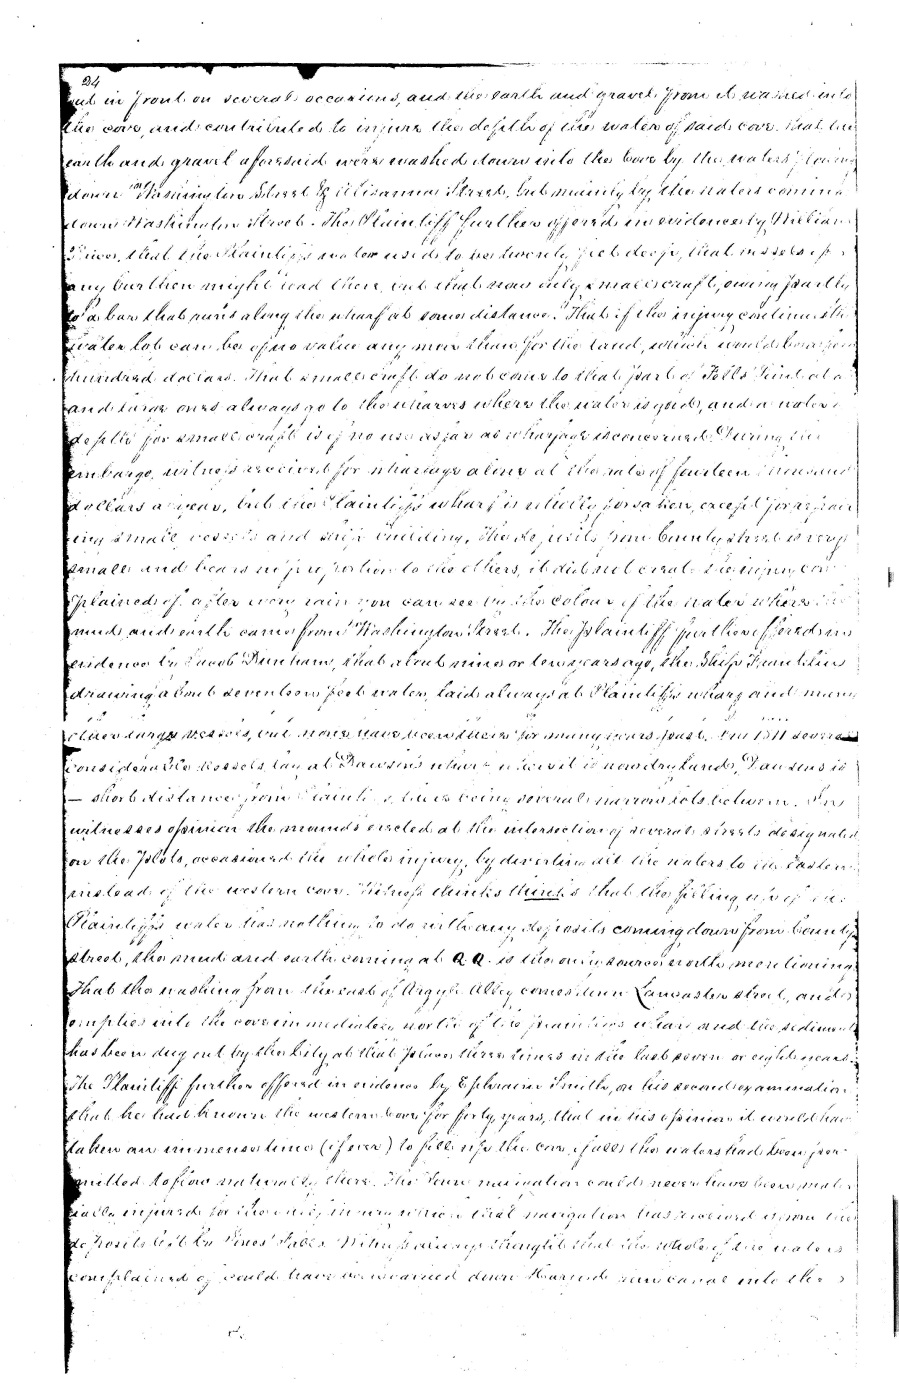 24
out in front on several occasions, and the earth and gravel from it washed into
the cove, and contributed to injure the depth of the water of said cove. That the
earth and gravel aforesaid were washed down into the Cove by the waters flowing
down Washington Street & Alisanna Street, but mainly by the waters coming
down Washington Street. The Plaintiff further offered in evidence by William
that the Plaintiff's water used to be twenty feet deep, that vessels of
any burthen might load there, but that now only small craft, owing partly
to a bar that runs along the wharf at some distance. That if the injury continues the
water lot can be of no value any more than for the land, which would be
hundred dollars. That small craft do not come to that part of Fells Point at a
and large ones always go to the wharves where the water is good, and a water
depth for small craft is of no use as far as wharfage is concerned. During the
embargo, witness received for wharfage alone at the rate of fourteen thousand
dollars a year, but the Plaintiff's wharf is wholly forsaken, except for repair
ing small vessels and ship building. The deposits from County street is very
small and bears no proportion to the others, it did not create the injury com
plained of. after every rain you can see by the colour of the water where the
mud and earth came from Washington Street. The plaintiff further offered in
evidence by Jacob Dunham, that about nine or ten years ago, the Ship Franklin
drawing about seventeen feet water, laid always at Plaintiff's wharf and many
other large vessels, but none have been there for many years past. In 1811 several
considerable vessels lay at Dawson's wharf where it is now dry land, Dawsons is
a short distance from Plaintiff's, there being several narrow lots between. In
witnesses opinion the mounds erected at the intersection of several streets designated
on the plots, occasioned the whole injury, by diverting all the waters to the Eastern
instead of the western cove. Witness thinks thinks that the filling up of the
Plaintiff's water has nothing to do with any deposits coming down from County
street, the mud and earth coming at Q Q. is the only source worth mentioning
That the washing from the east of Argyle Alley comes down Lancaster street, and
empties into the cove immediately north of the plaintiffs wharf and the sediment
has been dug out by the City at that place three times in the last seven or eight years.
The Plaintiff further offered in evidence by Ephraim Smith, on his second examination
that he had known the western Cove for forty years, that in his opinion it would have
taken an immense time (if ever) to fill up the cove if all the waters had been per
mitted to flow naturally there. The Town navigation could never have been mate
rially injured for the only injury which that navigation has received is from the
deposits left by Jones' Falls. Witness always thought that the whole of the waters
complained of could have been carried down Harford run canal into the